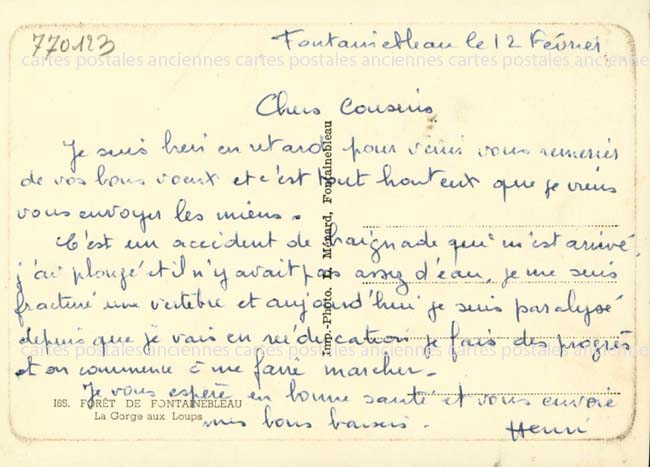 770123
Fontainebleau le 12 Février
cartes postales anciennes cartes postales anciennes cartes postales anciennes
Chers Cousins
Je suis bien en retard pour venir vous remercier
de vos bons voeux et c'est tout honteux que je viens
vous envoyer les miens.
C'est un accident de baignade qui m'est arrivé,
j'ai plongé et il n'y avait pas assez d'eau, je me suis
fracturé une vertèbre et aujourd'hui je suis paralysé
depuis que je vais en rééducation je fais des progrès
cartes postales anciennes cartes postales anciennes cartes postales anciennes
et on commence à me faire marcher.
Je vous espère en bonne santé et vous envoie
mes bons baisers.
Henri
165. FORÊT DE FONTAINEBLEAU
La Gorge aux Loups
Imp.-Photo. Ménard, Fontainebleau